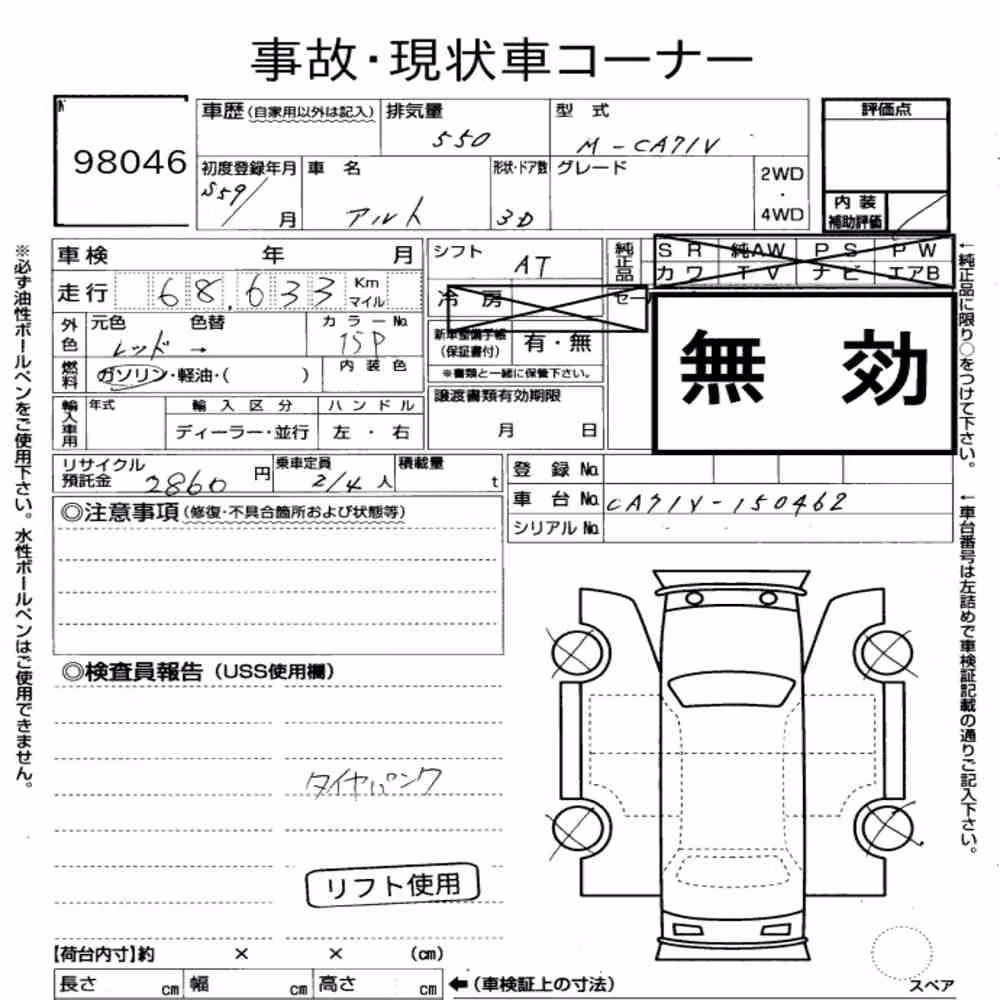 事故・現状車コーナー
98046
車歴 (自家用以外は記入)
排気量
550
型式
M-CA71V
評価点
初度登録年月
S59/ 月
車名
アルト
形状・ドア数
3D
グレード
2WD
・
4WD
内装
補助評価
車検 年 月
シフト
AT
純正品
SR 純AW PS PW
カワ TV ナビ エアB
走行 68,633 Km
マイル
冷房
セー
無効
外色
元色 色替
レッド →
カラーNo.
15P
内装色
新車整備手帳
(保証書付)
有・無
※書類と一緒に保管下さい。
燃料
ガソリン・軽油・( )
輸入車用
年式
輸入区分
ディーラー・並行
ハンドル
左・右
譲渡書類有効期限
月 日
リサイクル
預託金
2860 円
乗車定員
2/4 人
積載量
t
登録No.
車台No. CA71V-150462
シリアルNo.
◎注意事項 (修復・不具合箇所および状態等)
◎検査員報告 (USS使用欄)
タイヤパンク
リフト使用
【荷台内寸】約 × × (cm)
長さ cm 幅 cm 高さ cm
←(車検証上の寸法)
スペア
※必ず油性ボールペンをご使用下さい。水性ボールペンはご使用できません。
←純正品に限り○をつけて下さい。
←車台番号は左詰めで車検証記載の通りご記入下さい。